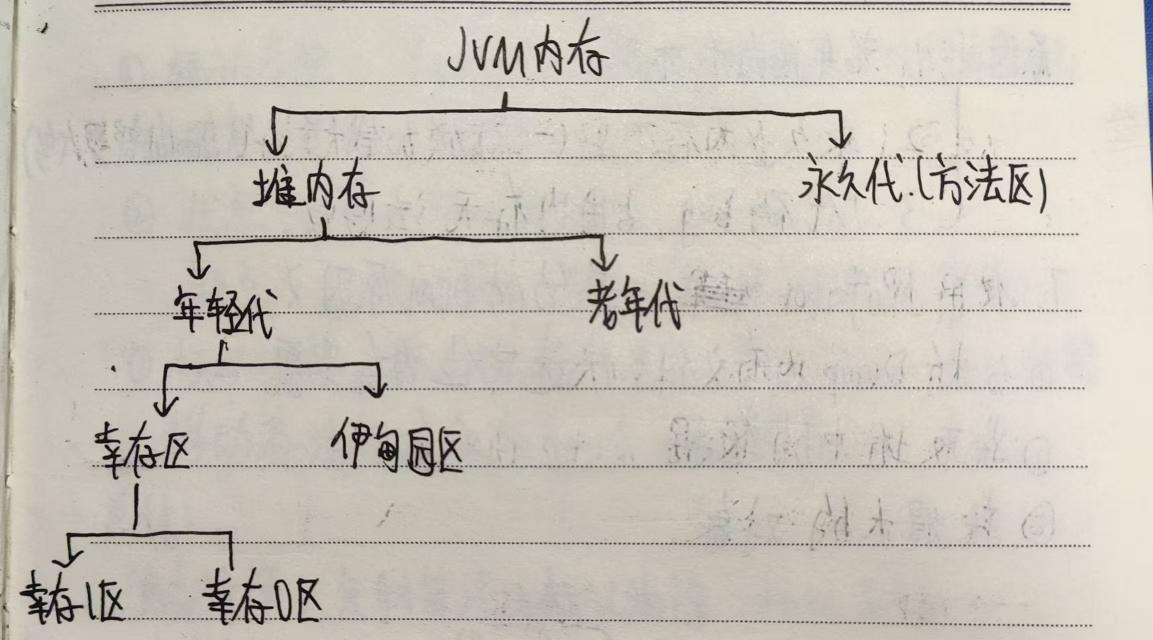 JVM内存
堆内存 永久代.(方法区)
年轻代 老年代
幸存区 伊甸园区
幸存1区 幸存0区